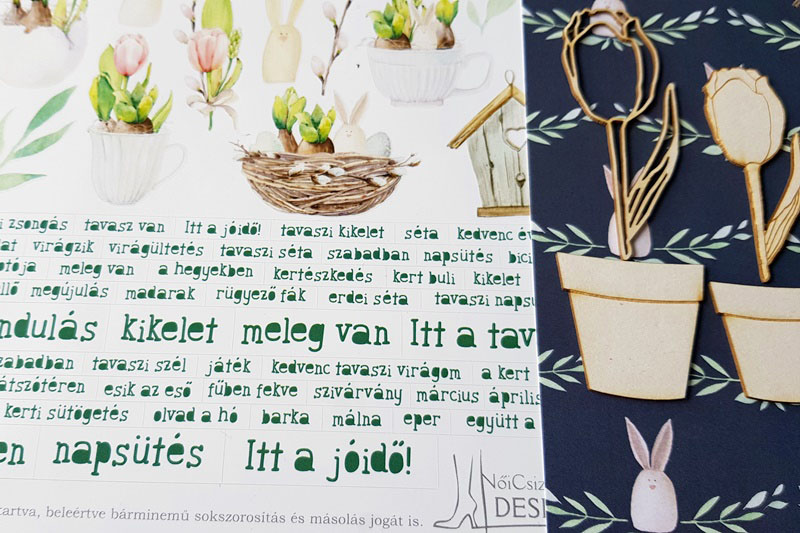 zsongás tavasz van Itt a jóidő! tavaszi kikelet séta kedvenc
virágzik virágültetés tavaszi séta szabadban napsütés bici
meleg van a hegyekben kertészkedés kert buli kikelet
megújulás madarak rügyező fák erdei séta tavaszi napsu
ndulás kikelet meleg van Itt a tav
zabadban tavaszi szél játék kedvenc tavaszi virágom a kert
átszótéren esik az eső fűben fekve szivárvány március április
kerti sütögetés olvad a hó barka málna eper együtt a
en napsütés Itt a jóidő!
NőiCsiz
DESI
tartva, beleértve bárminemű sokszorosítás és másolás jogát is.